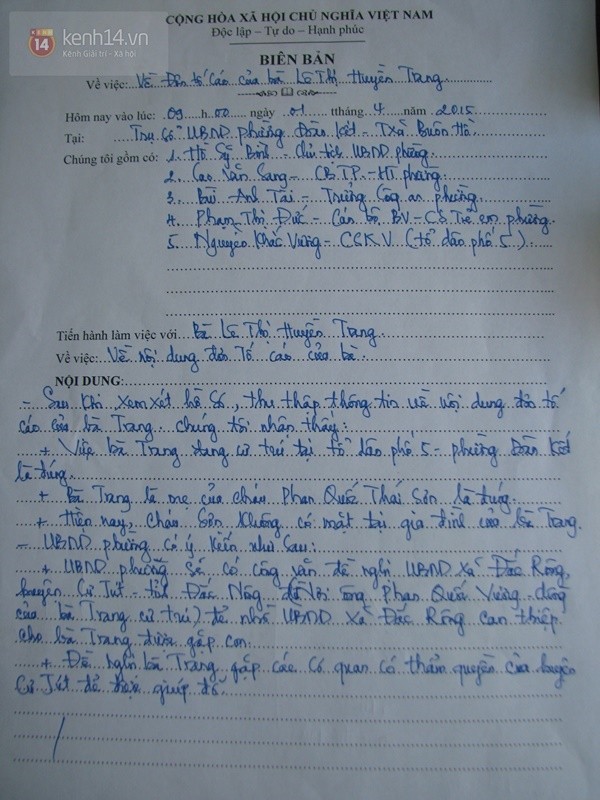 kenh14.vn
Kênh Giải trí - Xã hội
CỘNG HÒA XÃ HỘI CHỦ NGHĨA VIỆT NAM
Độc lập – Tự do – Hạnh phúc
BIÊN BẢN
Về việc: Về Đơn tố cáo của bà Lê Thị Huyền Trang
Hôm nay vào lúc: 09 h 00 ngày 01 ttháng 4 năm 2015
Tại: Trụ sở UBND phường Đoàn kết - TXã Buôn Hồ
Chúng tôi gồm có: 1. Hồ Sỹ Bình - Chủ tịch UBND phường.
2. Cao Văn Sang - CBTP-HT phường
3. Bùi Anh Tài - Trưởng Công an phường.
4. Phạm Thị Đức - Cán bộ BV-CS Trẻ em phường.
5. Nguyễn Khắc Vương - CSKV (tổ dân phố 5).
Tiến hành làm việc với Bà Lê Thị Huyền Trang.
Về việc: Về nội dung đơn Tố cáo của bà.
NỘI DUNG:
- Sau khi xem xét hồ sơ, thu thập thông tin về nội dung đơn tố
cáo của bà Trang. chúng tôi nhận thấy:
+ Việc bà Trang đang cư trú tại tổ dân phố 5 - phường Đoàn Kết
là đúng.
+ Bà Trang là mẹ của cháu Phan Quốc Thái Sơn là đúng.
+ Hiện nay, cháu Sơn không có mặt tại gia đình của bà Trang.
- UBND phường có ý kiến như sau:
+ UBND phường sẽ có công văn đề nghị UBND xã Đắc Rông,
huyện Cư Jút - tỉnh Đắc Nông (nơi ông Phan Quốc Vương - chồng
của bà Trang cư trú) để nhờ UBND xã Đắc Rông can thiệp
cho bà Trang được gặp con.
+ Đề nghị bà Trang gặp các cơ quan có thẩm quyền của huyện
Cư Jút để được giúp đỡ.